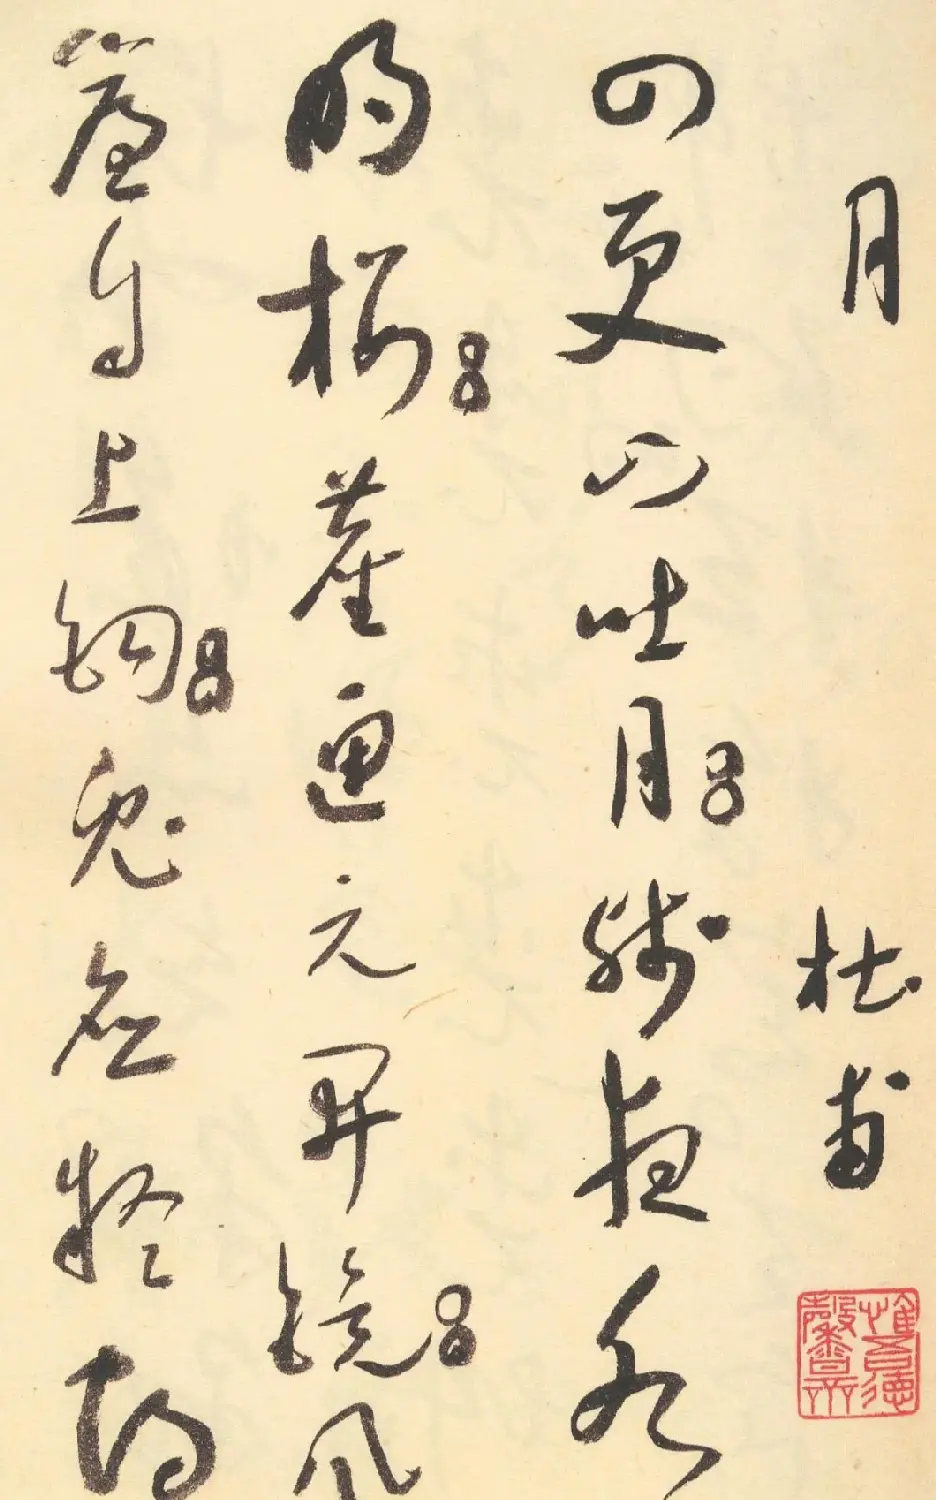 月 杜甫
惟吾德馨
四更山吐月殘夜水
明樓塵匣元開鏡風
簾自上鈎兔應疑